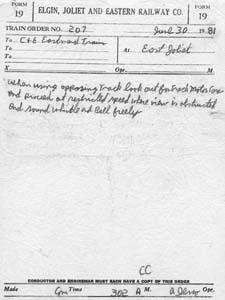 FORM 19
ELGIN, JOLIET AND EASTERN RAILWAY CO.
FORM 19
TRAIN ORDER NO. 207 June 30 1981
To C&E Eastward Train At East Joliet
To
To
X Opr. M.
When using opposing Track look out for Track Motor Cars
And proceed at restricted speed where view is obstructed
And sound whistle and Bell freely
CC
CONDUCTOR AND ENGINEMAN MUST EACH HAVE A COPY OF THIS ORDER
Made Com Time 302 A M. Opr.